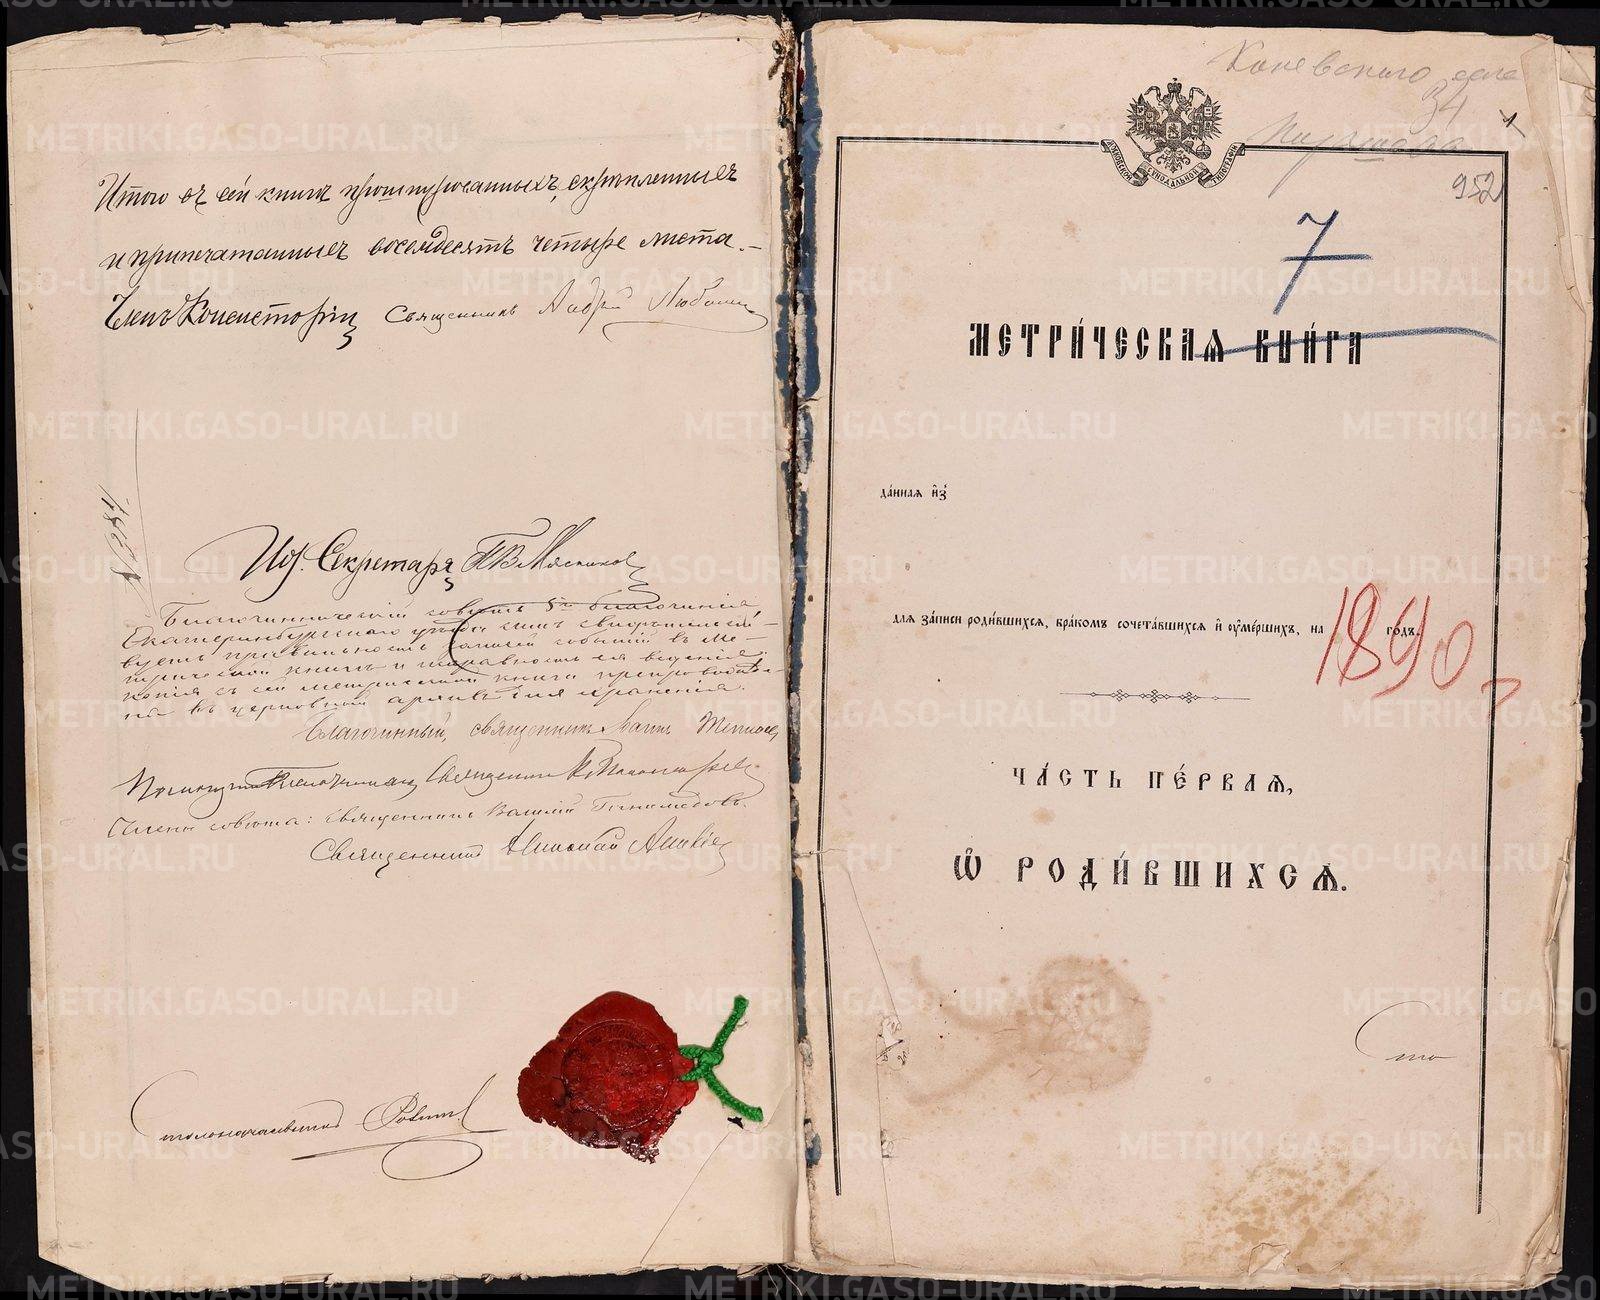 Итого въ сей книгѣ прошнурованныхъ, скрѣпленныхъ
и припечатанныхъ восемдесятъ четыре листа.–
Членъ Консисторіи Священникъ Андрей
Секретаря
Благочинническій совѣтъ 5го благочинія,
Екатеринбургскаго уѣзда симъ свидѣтельст-
вуетъ правильность записей событій въ ме-
трической книгѣ и исправность ея веденія.
копія съ сей метрической книги препровожде-
на въ церковный архивъ для храненія.
Благочинный, священникъ
Священникъ
Члены совѣта: священникъ Василій
Священникъ Николай
столоначальникъ
Коневского села
34
1
952
7
СѴНОДАЛЬНОЙ
МЕТРИ́ЧЕСКАѦ КНИ́ГА
да́ннаѧ и҆з̾
для за́писи роди́вшихся, бра́комъ сочета́вшихся и҆ ᲂу҆ме́ршихъ, на 1890 годъ.
ЧА́СТЬ ПЕ́РВАѦ,
Ѡ҆ РОДИ́ВШИХСѦ.
Сто